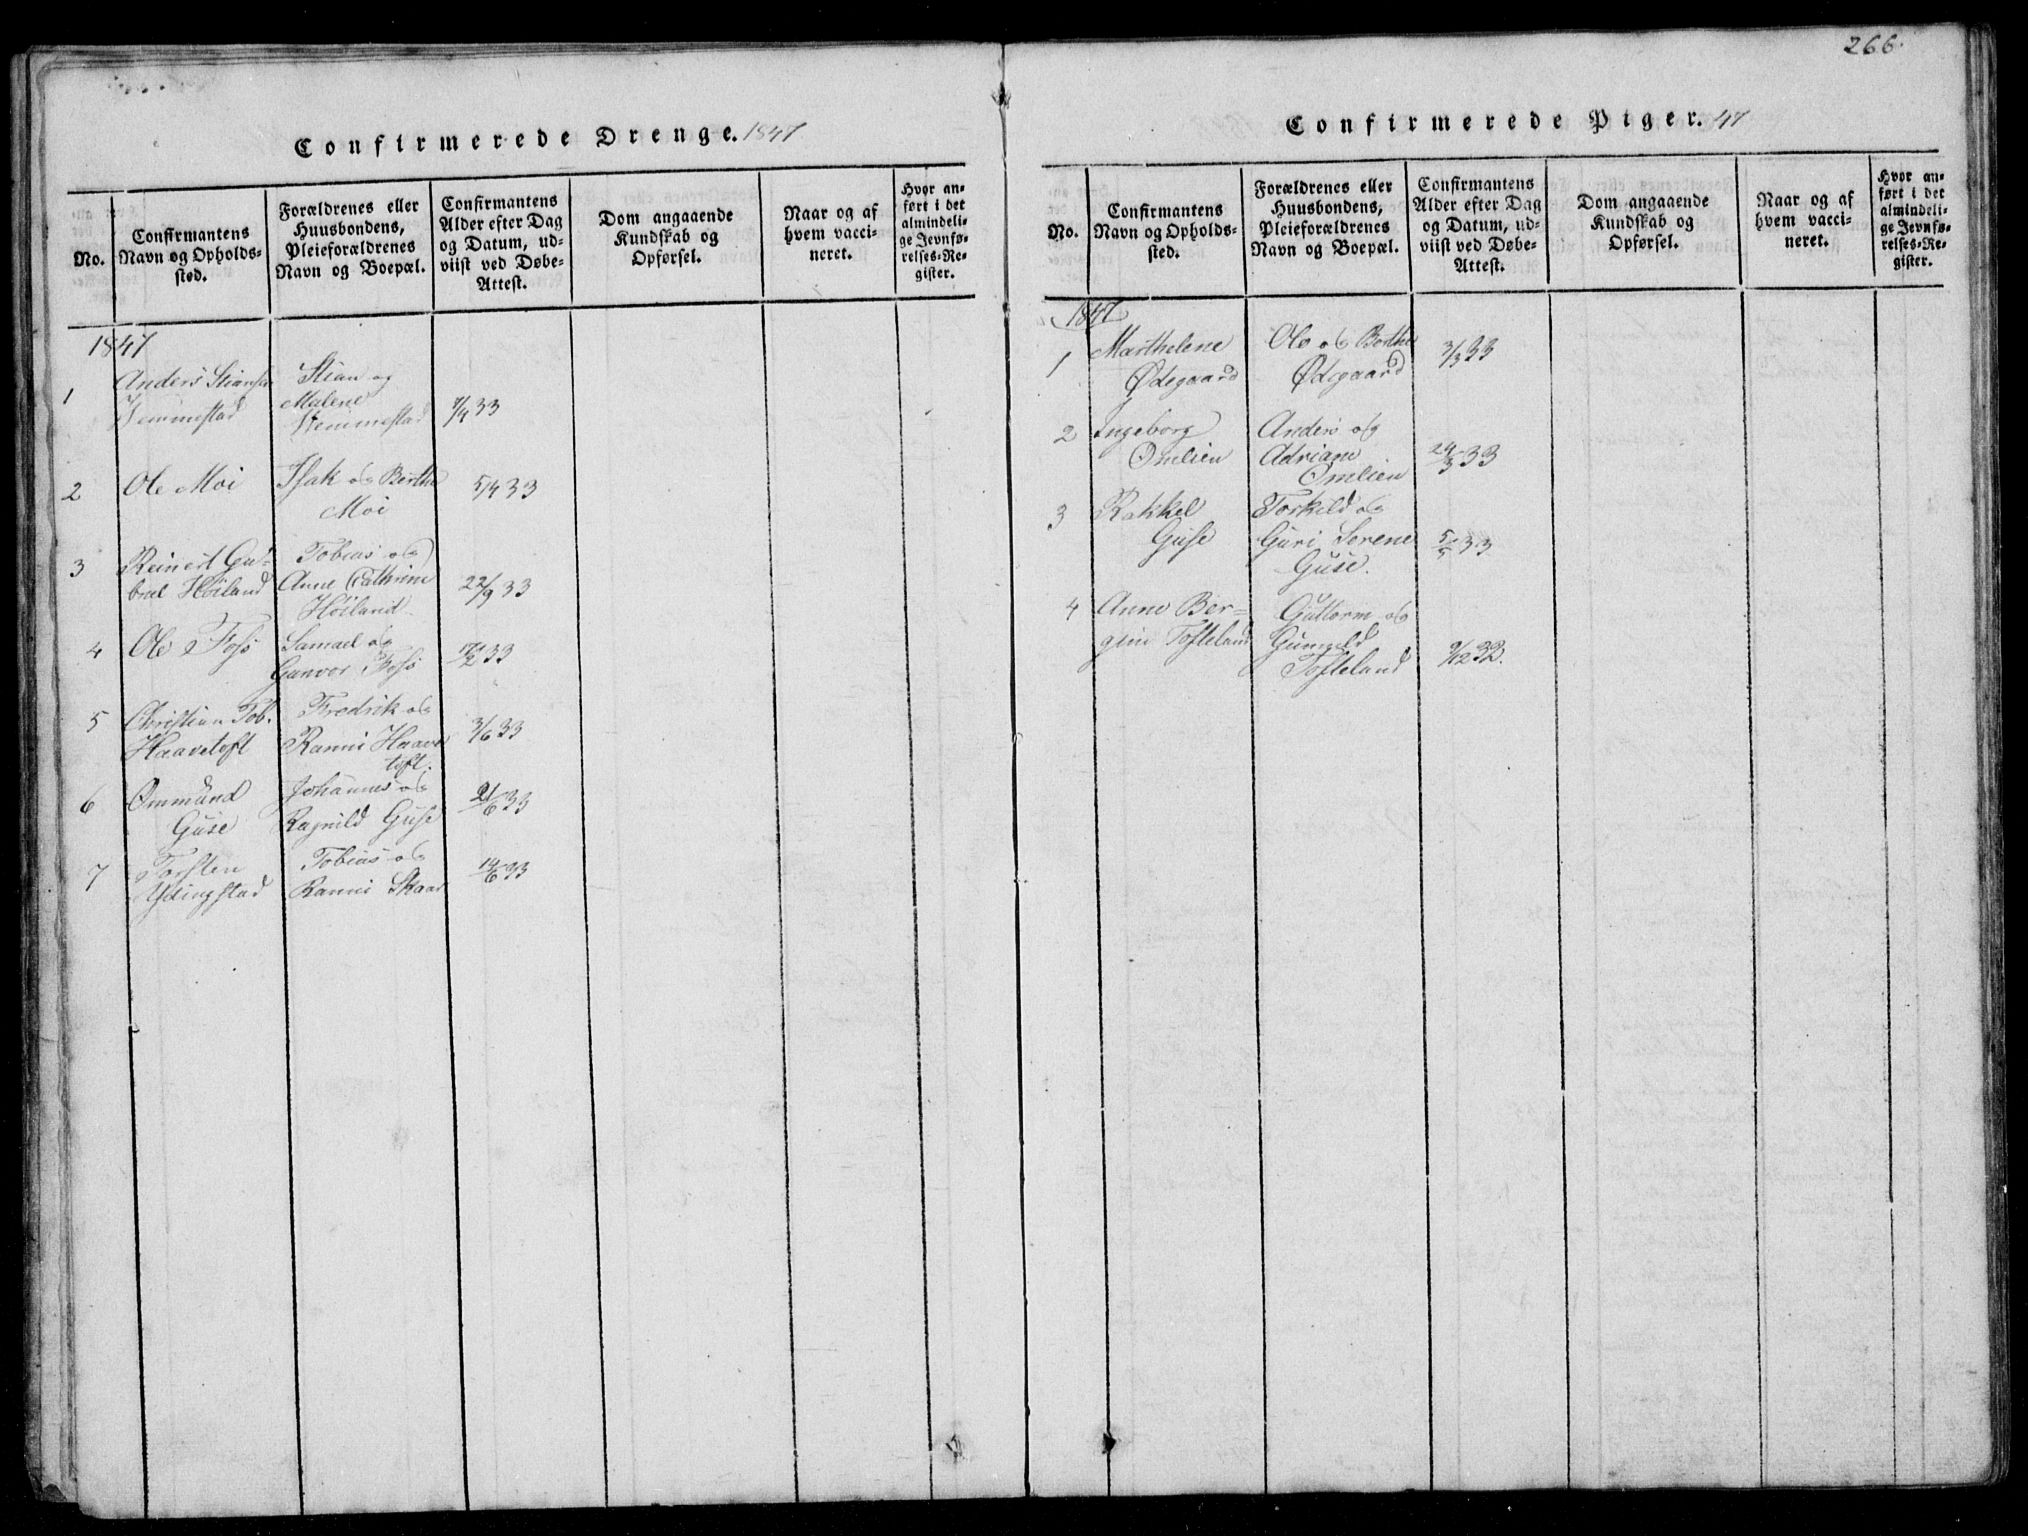 Confirmerede Drenge. 1847
No.
Confirmantens
Navn og Opholds-
sted.
Forældrenes eller
Huusbondens,
Pleieforældrenes
Navn og Boepæl.
Confirmantens
Alder efter Dag
og Datum, ud-
viist ved Døbe-
Attest.
Dom angaaende
Kundskab og
Opførsel.
Naar og af
hvem vacci-
neret.
Hvor an-
ført i det
almindeli-
ge Jevnfø-
relses-Re-
gister.
1847
1
Anders Stiansen
Hemmestad
Stian og
Malene
Hemmestad
7/4 33
2
Ole Moi
Isak og Berthe
Moi
5/4 33
3
Reinert Ga-
briel Höiland
Tobias og
Anne Cathrine
Höiland
22/9 33
4
Ole Foss
Samuel og
Gunvor Foss
17/2 33
5
Christian Tob.
Haavetoft
Fredrik og
Ranni Haave
toft.
3/6 33
6
Ommund
Guse
Johannes og
Ragnild Guse
21/6 33
7
Torsten
Tobias og
Ranni Skaar
14/6 33
266.
Confirmerede Piger. 47
No.
Confirmantens
Navn og Opholds-
sted.
Forældrenes eller
Huusbondens,
Pleieforældrenes
Navn og Boepæl.
Confirmantens
Alder efter Dag
og Datum, ud-
viist ved Døbe-
Attest.
Dom angaaende
Kundskab og
Opførsel.
Naar og af
hvem vacci-
neret.
Hvor an-
ført i det
almindeli-
ge Jevnfø-
relses-Re-
gister.
1847
1
Marthelene
Ødegaard
Ole og Berthe
Ødegaard
3/3 33
2
Ingeborg
Omlien
Anders og
Adriane
Omlien
24/3 33
3
Rakkel
Guse
Torkild og
Guri Serene
Guse.
5/5 33
4
Anne Ber-
gine Tofteland
Guttorm og
Gunnild
Tofteland
9/12 32.